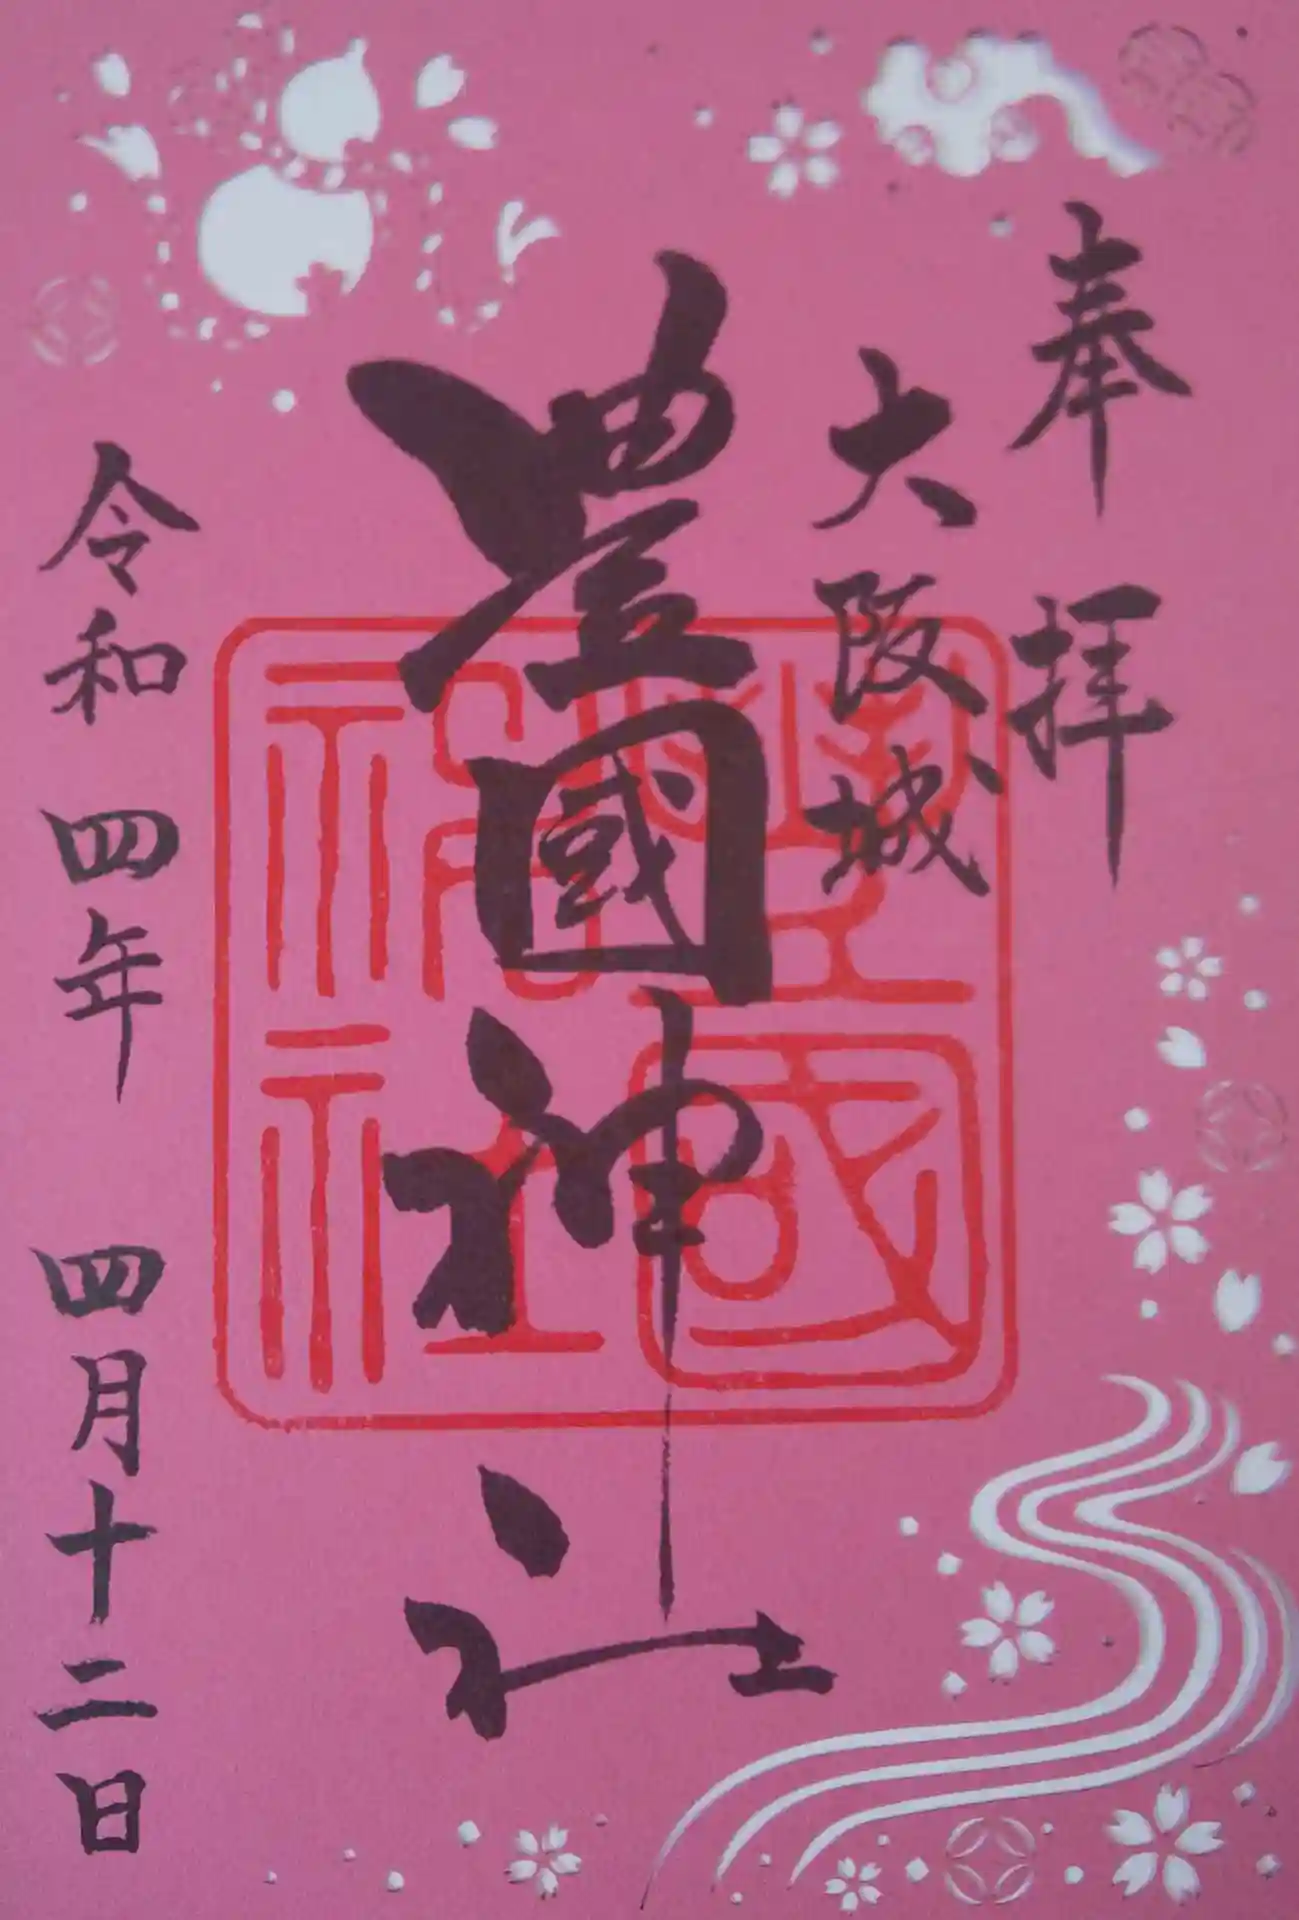 奉拝
大阪城
豊國神社
豊國神社
令和四年 四月十二日